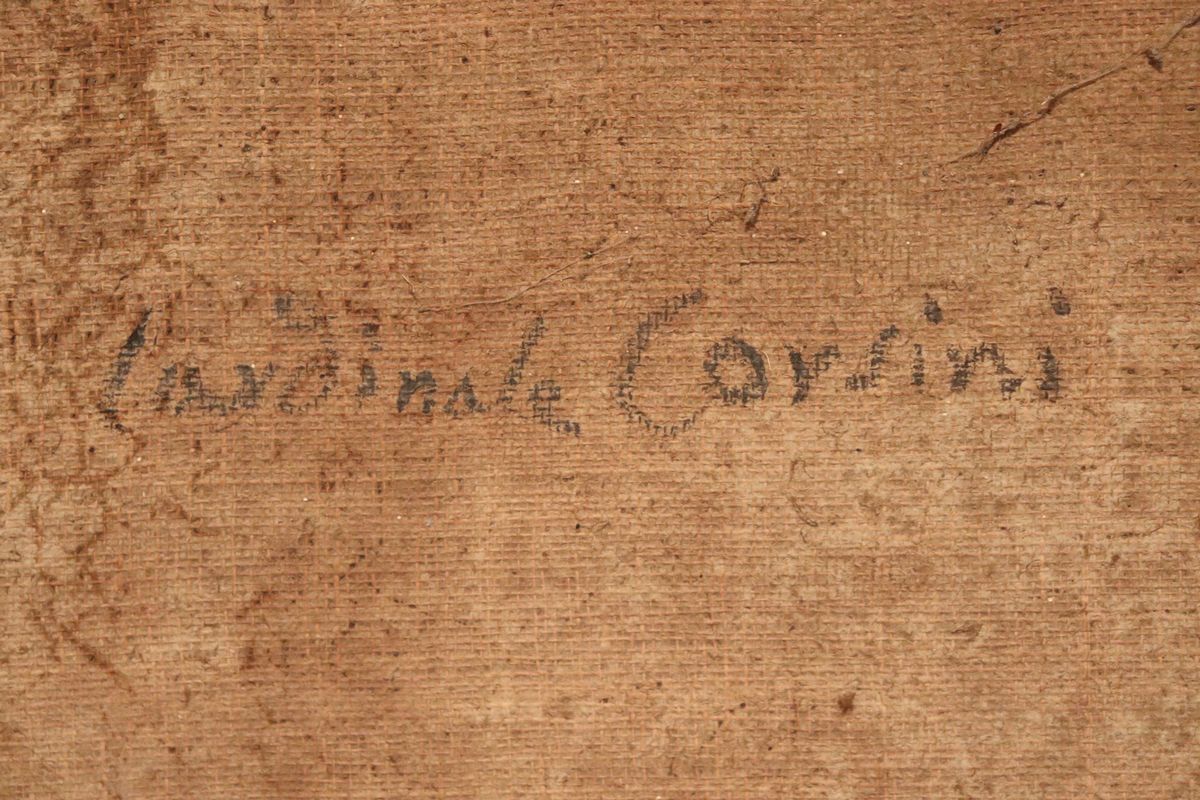 Cardinale Corsini